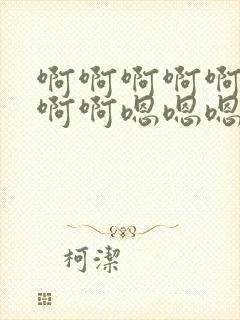 啊啊啊啊啊
啊啊嗯嗯嗯
柯潔